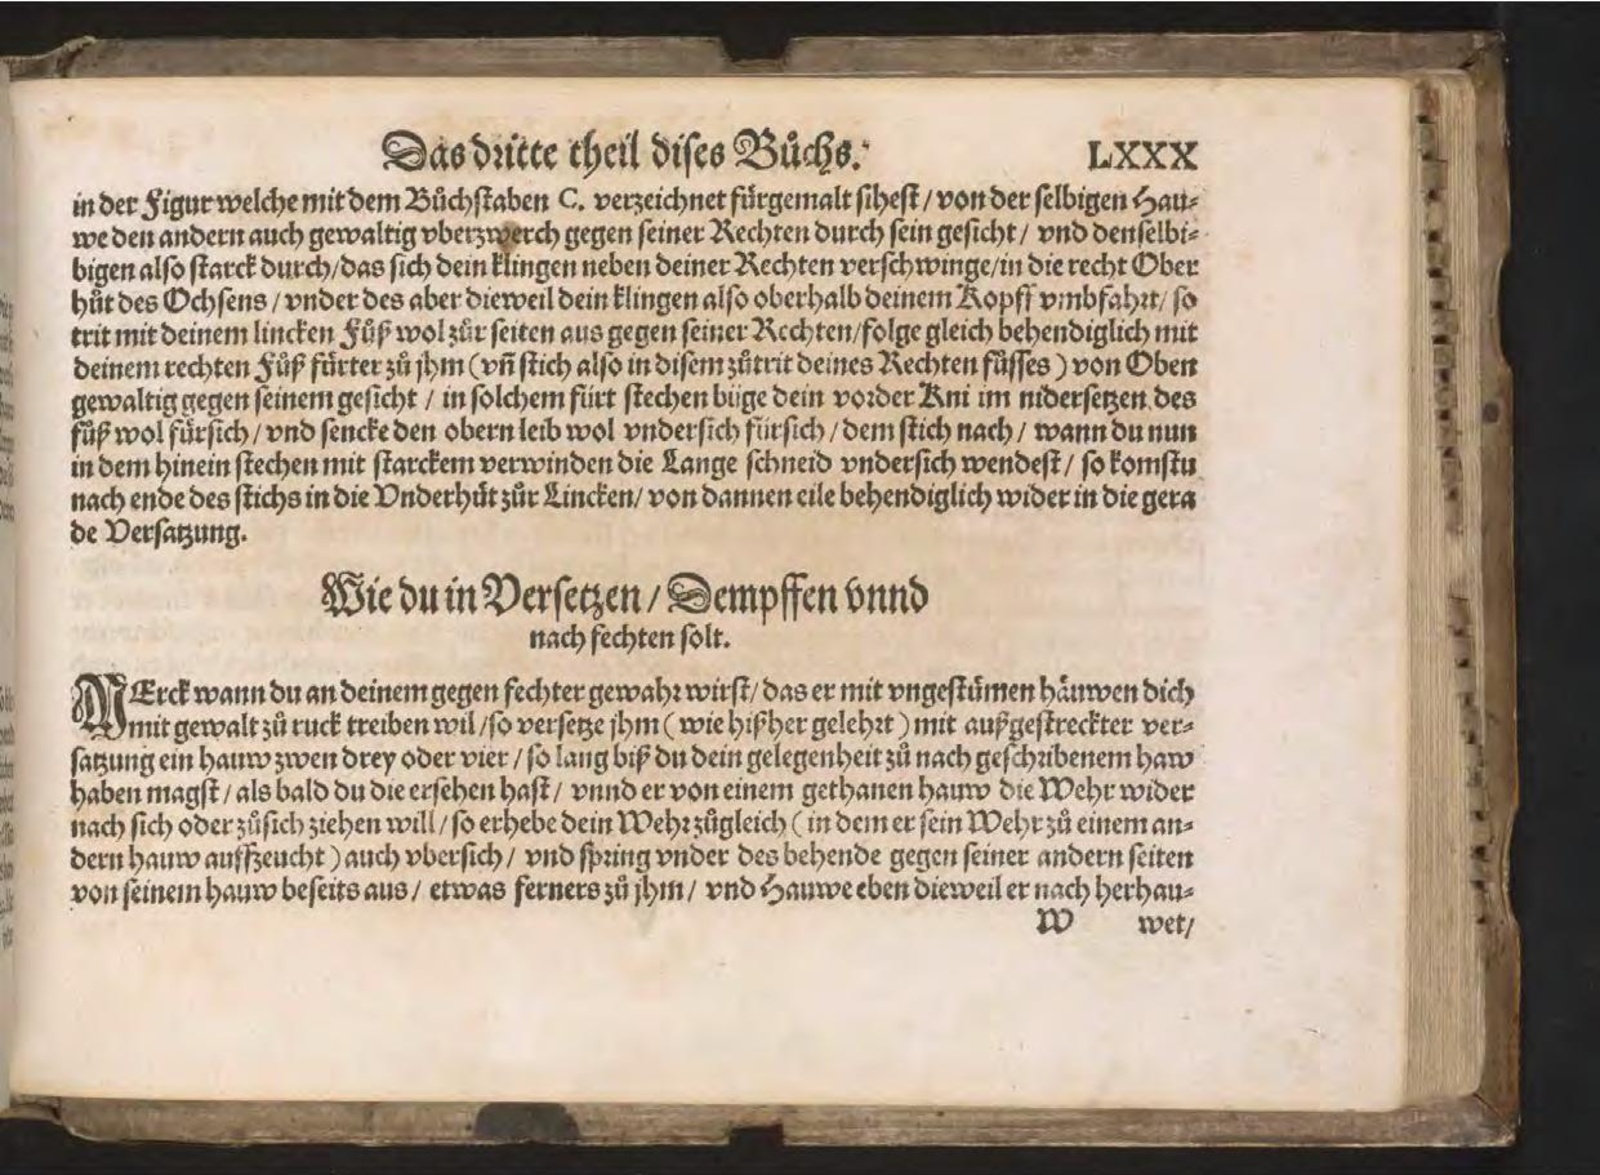 Das dritte theil dises Bůchs. LXXX
in der Figur welche mit dem Bůchstaben C. verzeichnet fürgemalt sihest / von der selbigen Hau⸗
we den andern auch gewaltig vberzwerch gegen seiner Rechten durch sein gesicht / vnd denselbi⸗
bigen also starck durch / das sich dein klingen neben deiner Rechten verschwinge / in die recht Ober
hůt des Ochsens / vnder des aber dieweil dein klingen also oberhalb deinem Kopff vmbfahrt / so
trit mit deinem lincken Fůß wol zůr seiten aus gegen seiner Rechten / folge gleich behendiglich mit
deinem rechten Fůß fürter zů jhm ( vñ stich also in disem zůtrit deines Rechten fůsses ) von Oben
gewaltig gegen seinem gesicht / in solchem fürt stechen büge dein vorder Kni im nidersetzen des
fůß wol fürsich / vnd sencke den obern leib wol vndersich fürsich / dem stich nach / wann du nun
in dem hinein stechen mit starckem verwinden die Lange schneid vndersich wendest / so komstu
nach ende des stichs in die Vnderhůt zůr Lincken / von dannen eile behendiglich wider in die gera
de Versatzung.
Wie du in Versetzen / Dempffen vnnd
nach fechten solt.
MErck wann du an deinem gegen fechter gewahr wirst / das er mit vngestümen häuwen dich
mit gewalt zů ruck treiben wil / so versetze jhm ( wie hißher gelehrt ) mit außgestreckter ver⸗
satzung ein hauw zwen drey oder vier / so lang biß du dein gelegenheit zů nach geschribenem haw
haben magst / als bald du die ersehen hast / vnnd er von einem gethanen hauw die Wehr wider
nach sich oder zůsich ziehen will / so erhebe dein Wehr zůgleich ( in dem er sein Wehr zů einem an⸗
dern hauw auffzeucht ) auch vbersich / vnd spring vnder des behende gegen seiner andern seiten
von seinem hauw beseits aus / etwas ferners zů jhm / vnd Hauwe eben dieweil er nach herhau⸗
W wet /